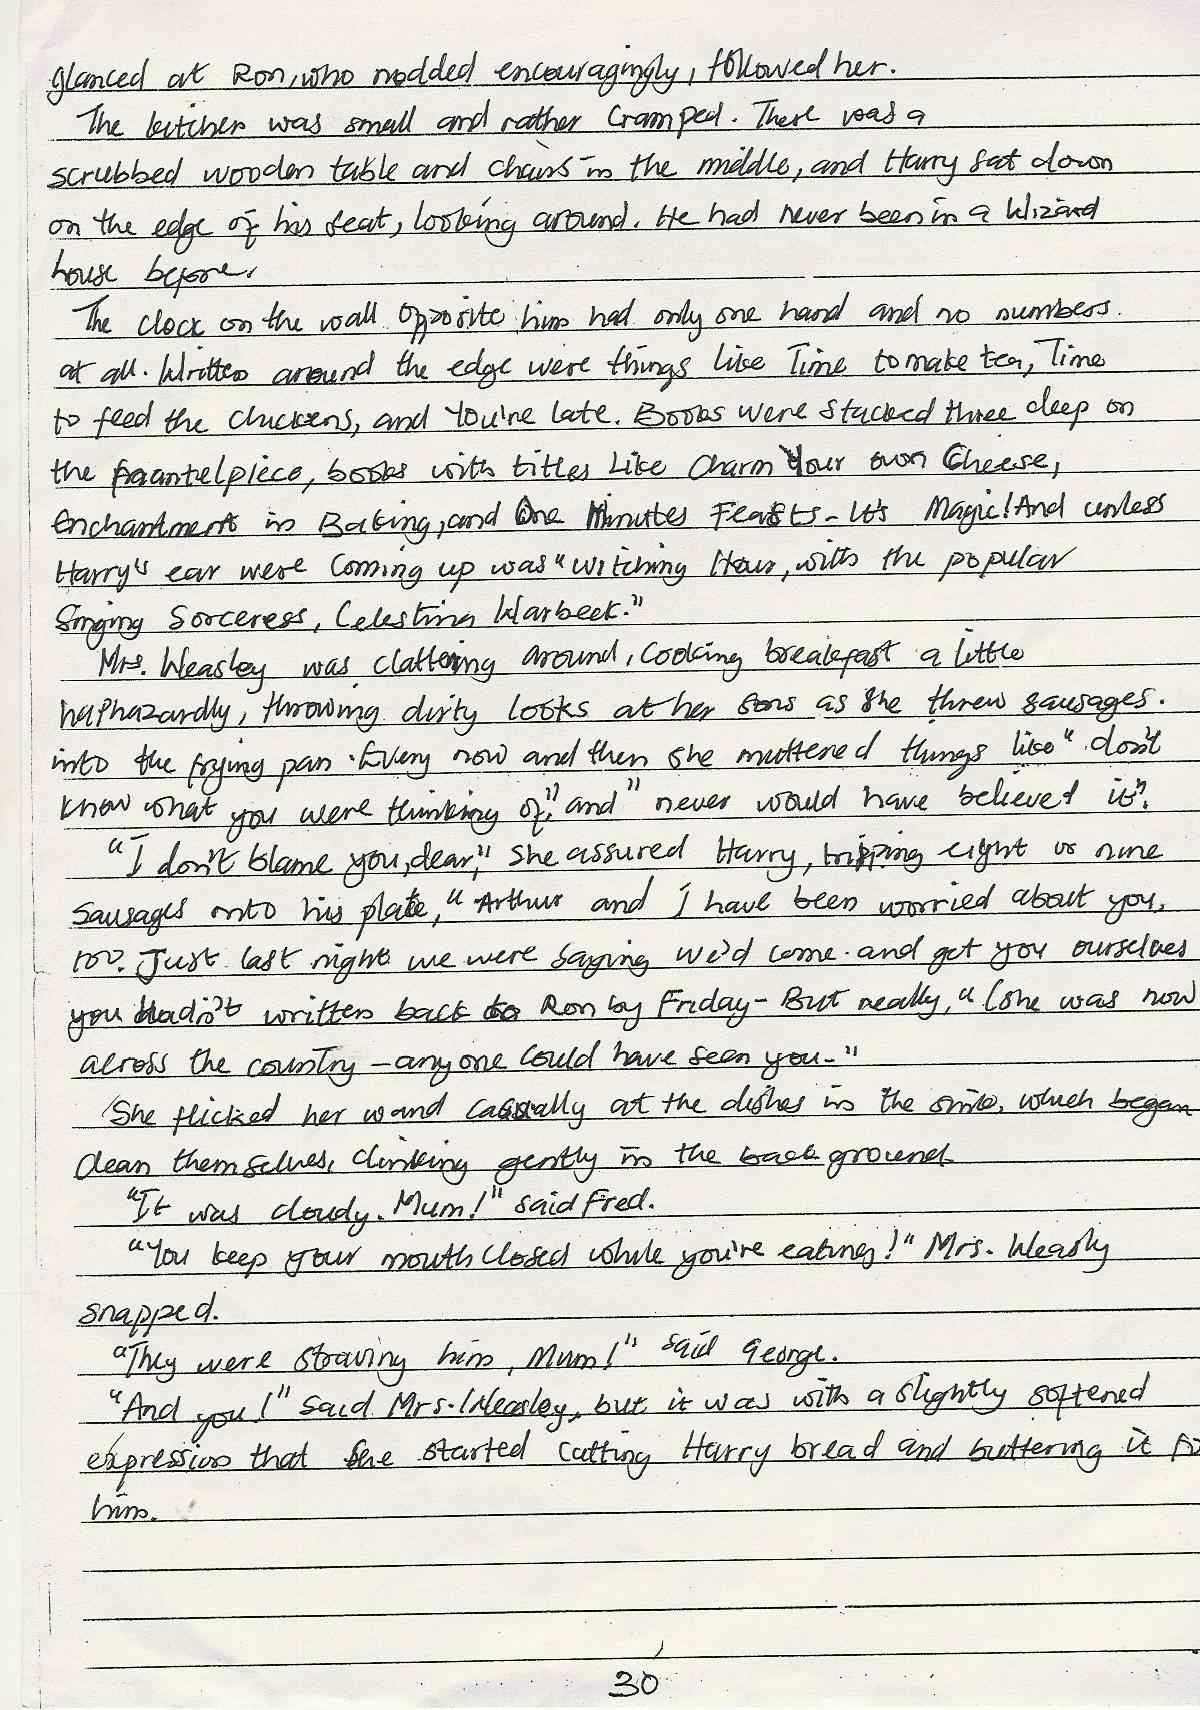 glanced at Ron, who nodded encouragingly, followed her.
The kitchen was small and rather cramped. There was a
scrubbed wooden table and chairs in the middle, and Harry sat down
on the edge of his seat, looking around. He had never been in a Wizard
house before.
The clock on the wall opposite him had only one hand and no numbers.
at all. Written around the edge were things like Time to make tea, Time
to feed the chickens, and You're late. Books were stacked three deep on
the mantelpiece, books with titles Like Charm Your own Cheese,
Enchantment in Baking, and One Minutes Feasts - It's Magic! And unless
Harry's ear were Coming up was "witching Hour, with the popular
Singing Sorceress, Celestina Warbeck."
Mrs. Weasley was clattering around, Cooking breakfast a little
haphazardly, throwing dirty looks at her sons as she threw sausages.
into the frying pan. Every now and then she muttered things like "don't
know what you were thinking of," and "never would have believed it".
"I don't blame you, dear," she assured Harry, tripping eight or nine
sausages onto his plate, "Arthur and I have been worried about you,
too. Just last night we were saying we'd come and get you ourselves
you hadn't written back to Ron by Friday - But really, "(she was now
across the country - anyone could have seen you-"
She flicked her wand casually at the dishes in the sink, which began
clean themselves, clinking gently in the background
"It was cloudy. Mum!" said Fred.
"You keep your mouth closed while you're eating!" Mrs. Weasly
snapped.
"They were straving him, Mum!" said George.
"And you!" said Mrs. Weasley, but it was with a slightly softened
expression that she started cutting Harry bread and buttering it fo
him.
30